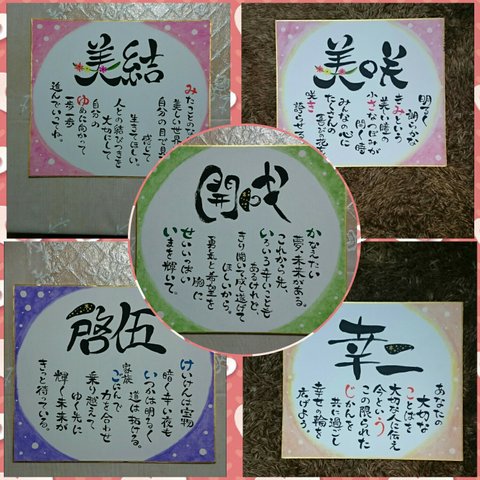 美結
みたことのな
美しい世界
自分の目で見
感じて
生きてほしい。
人との結びつきを
大切にして
自分の
ゆめに向かって
一歩一歩
進んでいってね。
美咲
明るく
朗らかな
きみという
美しい瞳の
小さなつぼみが
開く時
みんなの心に
たくさんの
咲き
誇らせる
開成
かなえたい
夢、未来がある
これから先、
いろいろ辛いことも
あるけれど
きり開いて成し遂げて
ほしいから。
勇気と希望を
胸に
せいいっぱい
いまを輝いて。
啓伍
けいけんは宝物
暗く辛い夜も
いつかは明るく
道は拓ける。
家族
ごにんで
力を合わせ
乗り越えて
ゆく先に
輝く未来が
きっと待っている。
幸二
あなたの
大切な
ことばを
大切な人に伝え
今という
この限られた
じかんを
共に過ごし
幸せの輪を
広げよう。